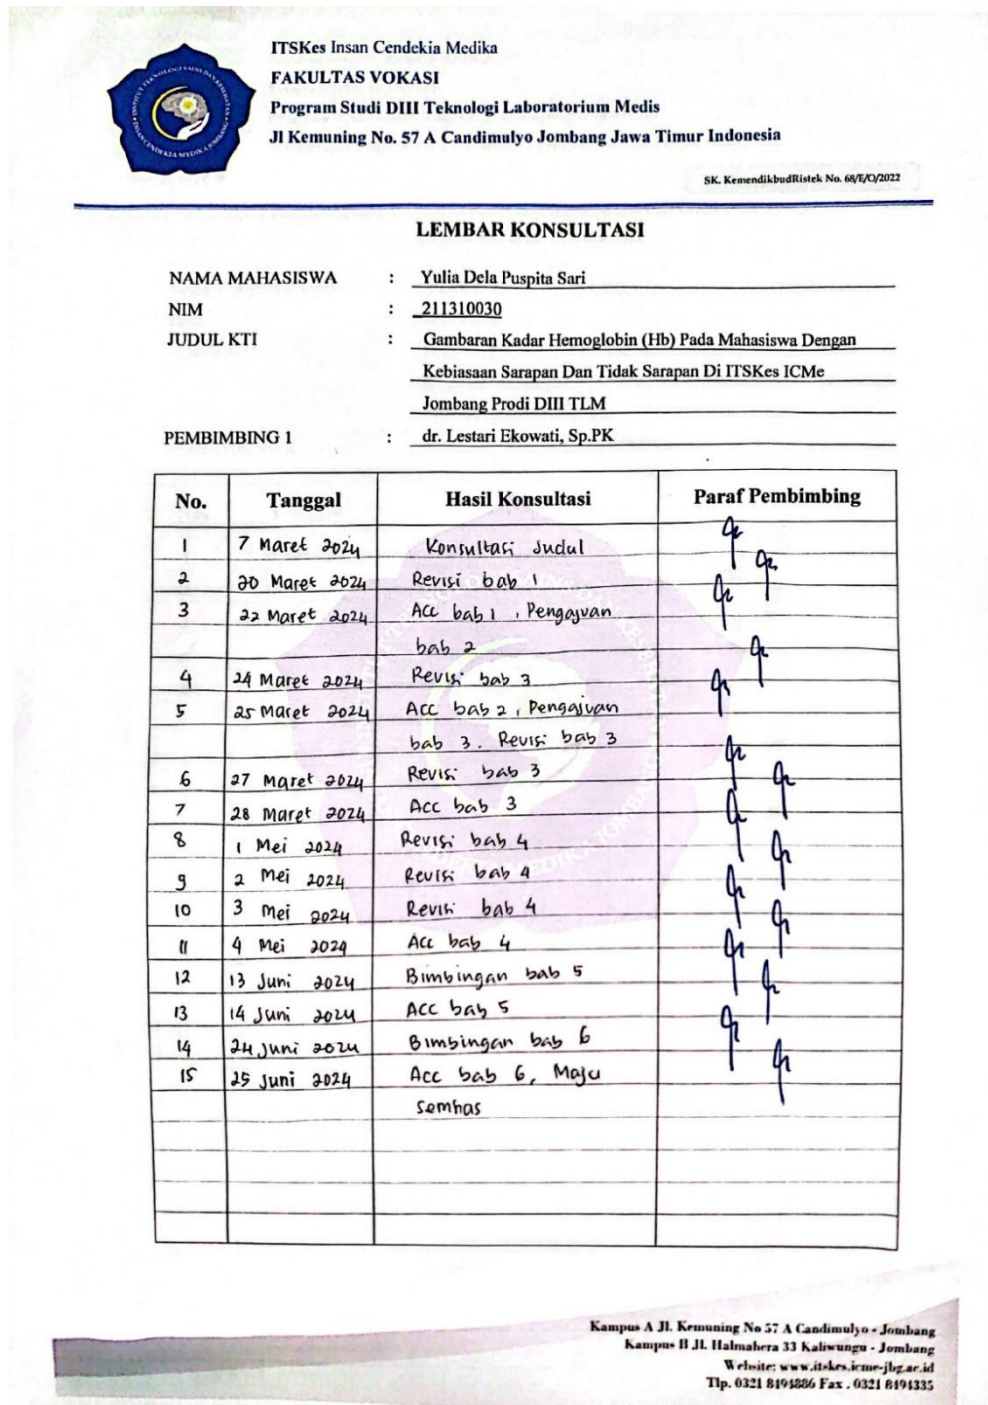 ITSKes Insan Cendekia Medika
FAKULTAS VOKASI
Program Studi DIII Teknologi Laboratorium Medis
Jl Kemuning No. 57 A Candimulyo Jombang Jawa Timur Indonesia
SK. KemendikbudRistek No. 68/E/O/2022
LEMBAR KONSULTASI
NAMA MAHASISWA : Yulia Dela Puspita Sari
NIM : 211310030
JUDUL KTI : Gambaran Kadar Hemoglobin (Hb) Pada Mahasiswa Dengan
Kebiasaan Sarapan Dan Tidak Sarapan Di ITSKes ICMe
Jombang Prodi DIII TLM
PEMBIMBING 1 : dr. Lestari Ekowati, Sp.PK
No. Tanggal Hasil Konsultasi Paraf Pembimbing
1 7 Maret 2024 Konsultasi Judul
2 20 Maret 2024 Revisi bab 1
3 22 Maret 2024 Acc bab 1, Pengajuan
bab 2
4 24 Maret 2024 Revisi bab 3
5 25 Maret 2024 Acc bab 2, Pengajuan
bab 3. Revisi bab 3
6 27 Maret 2024 Revisi bab 3
7 28 Maret 2024 Acc bab 3
8 1 Mei 2024 Revisi bab 4
9 2 Mei 2024 Revisi bab 4
10 3 Mei 2024 Revisi bab 4
11 4 Mei 2024 Acc bab 4
12 13 Juni 2024 Bimbingan bab 5
13 14 Juni 2024 Acc bab 5
14 24 Juni 2024 Bimbingan bab 6
15 25 Juni 2024 Acc bab 6, Maju
Semhas
Kampus A Jl. Kemuning No 57 A Candimulyo - Jombang
Kampus B Jl. Halmahera 33 Kaliwungu - Jombang
Website: www.itskes.icme-jbg.ac.id
Tlp. 0321 8494886 Fax . 0321 8494335